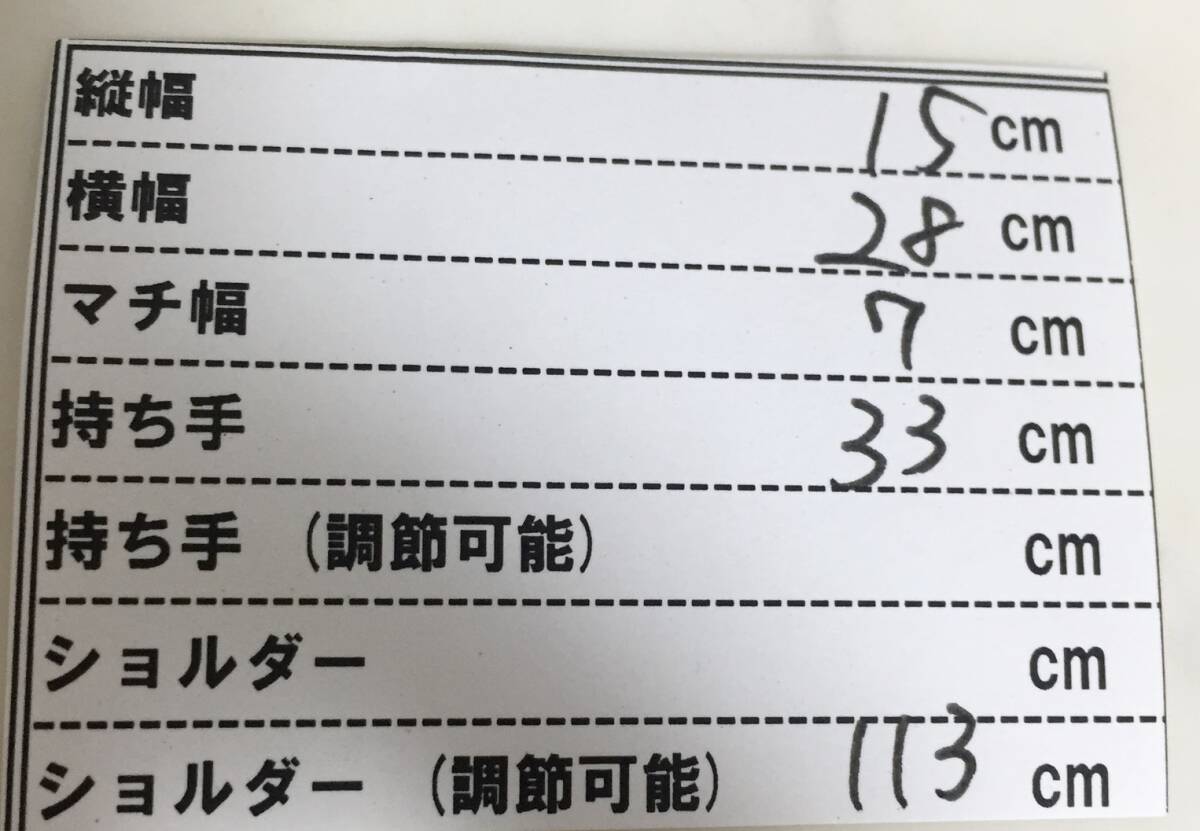 縦幅 15 cm
横幅 28 cm
マチ幅 7 cm
持ち手 33 cm
持ち手 (調節可能) cm
ショルダー cm
ショルダー (調節可能) 113 cm